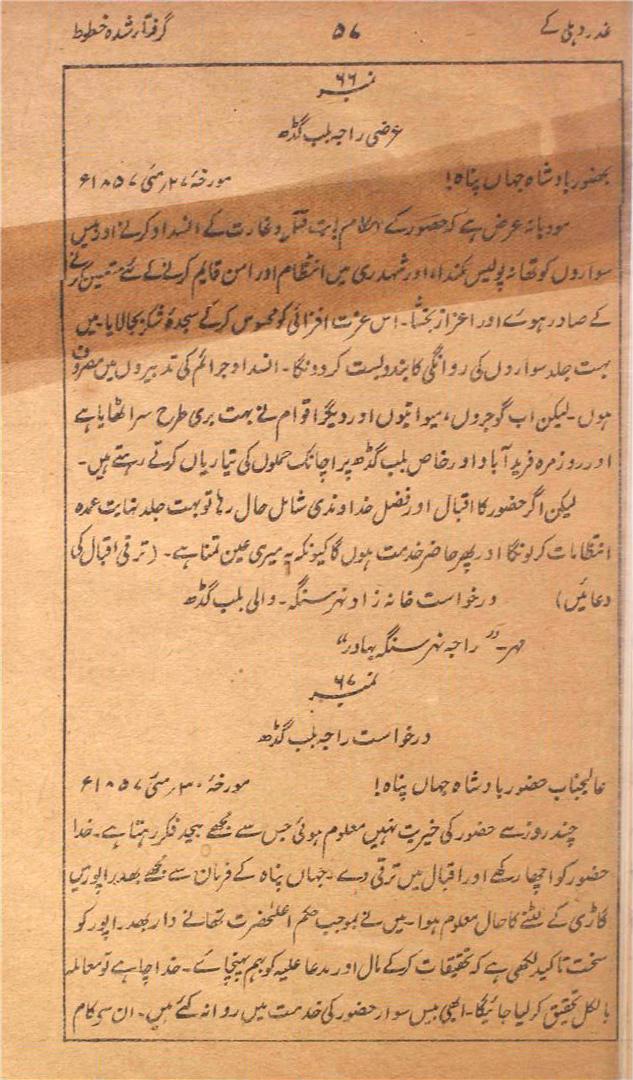 غدر دہلی کے ۵۷ گرفتار شدہ خطوط
نمبر ۶۶
عرضی راجہ بلب گڈھ
بحضور بادشاہ جہاں پناہ! مورخہ ۲۷؍مئی ۱۸۵۷ء
مودبانہ عرض ہے کہ حضور کے احکام بابت قتل و غارت کے انسداد کرنے اور بیس
سواروں کو تھانہ پولیس اور شہدری میں انتظام اور امن قایم کرنے کے لئے متعین کرنے
کے صادر ہوئے اور اعزاز بخشا۔ اس عزت افزائی کو محسوس کر کے سجدۂ شکر بجا لایا۔ میں
بہت جلد سواروں کی روانگی کا بندوبست کر دونگا۔ انسداد جرائم کی تدبیروں میں مصروف
ہوں۔ لیکن اب گوجروں، میواتیوں اور دیگر اقوام نے بہت بری طرح سر اٹھایا ہے
اور روز مرہ فرید آباد اور خاص بلب گڈھ پر اچانک حملوں کی تیاریاں کرتے رہتے ہیں۔
لیکن اگر حضور کا اقبال اور فضل خداوندی شامل حال رہا تو بہت جلد نہایت عمدہ
انتظامات کر لونگا اور پھر حاضر خدمت ہوں گا کیونکہ یہ میری عین تمنا ہے۔ (ترقی اقبال کی
دعائیں) درخواست خانہ زاد نہر سنگہ۔ والی بلب گڈھ
مہر۔ ”راجہ نہر سنگہ بہادر“
نمبر ۶۷
درخواست راجہ بلب گڈھ
عالیجناب حضور بادشاہ جہاں پناہ! مورخہ ۳۰؍مئی ۱۸۵۷ء
چند روز سے حضور کی خیریت نہیں معلوم ہوئی جس سے مجھے بیحد فکر رہتا ہے۔ خدا
حضور کو اچھا رکھے اور اقبال میں ترقی دے۔ جہاں پناہ کے فرمان سے مجھے بھدراپور میں
گاڑی کے لٹنے کا حال معلوم ہوا۔ میں نے بموجب حکم اعلیٰحضرت تھانے دار بھدراپور کو
سخت تاکید لکھی ہے کہ تحقیقات کر کے مال اور مدعا علیہ کو بہم پہنچائے۔ خدا چاہے تو معاملہ
بالکل تحقیق کر لیا جائیگا۔ ابھی بیس سوار حضور کی خدمت میں روانہ کئے ہیں۔ ان سے کام